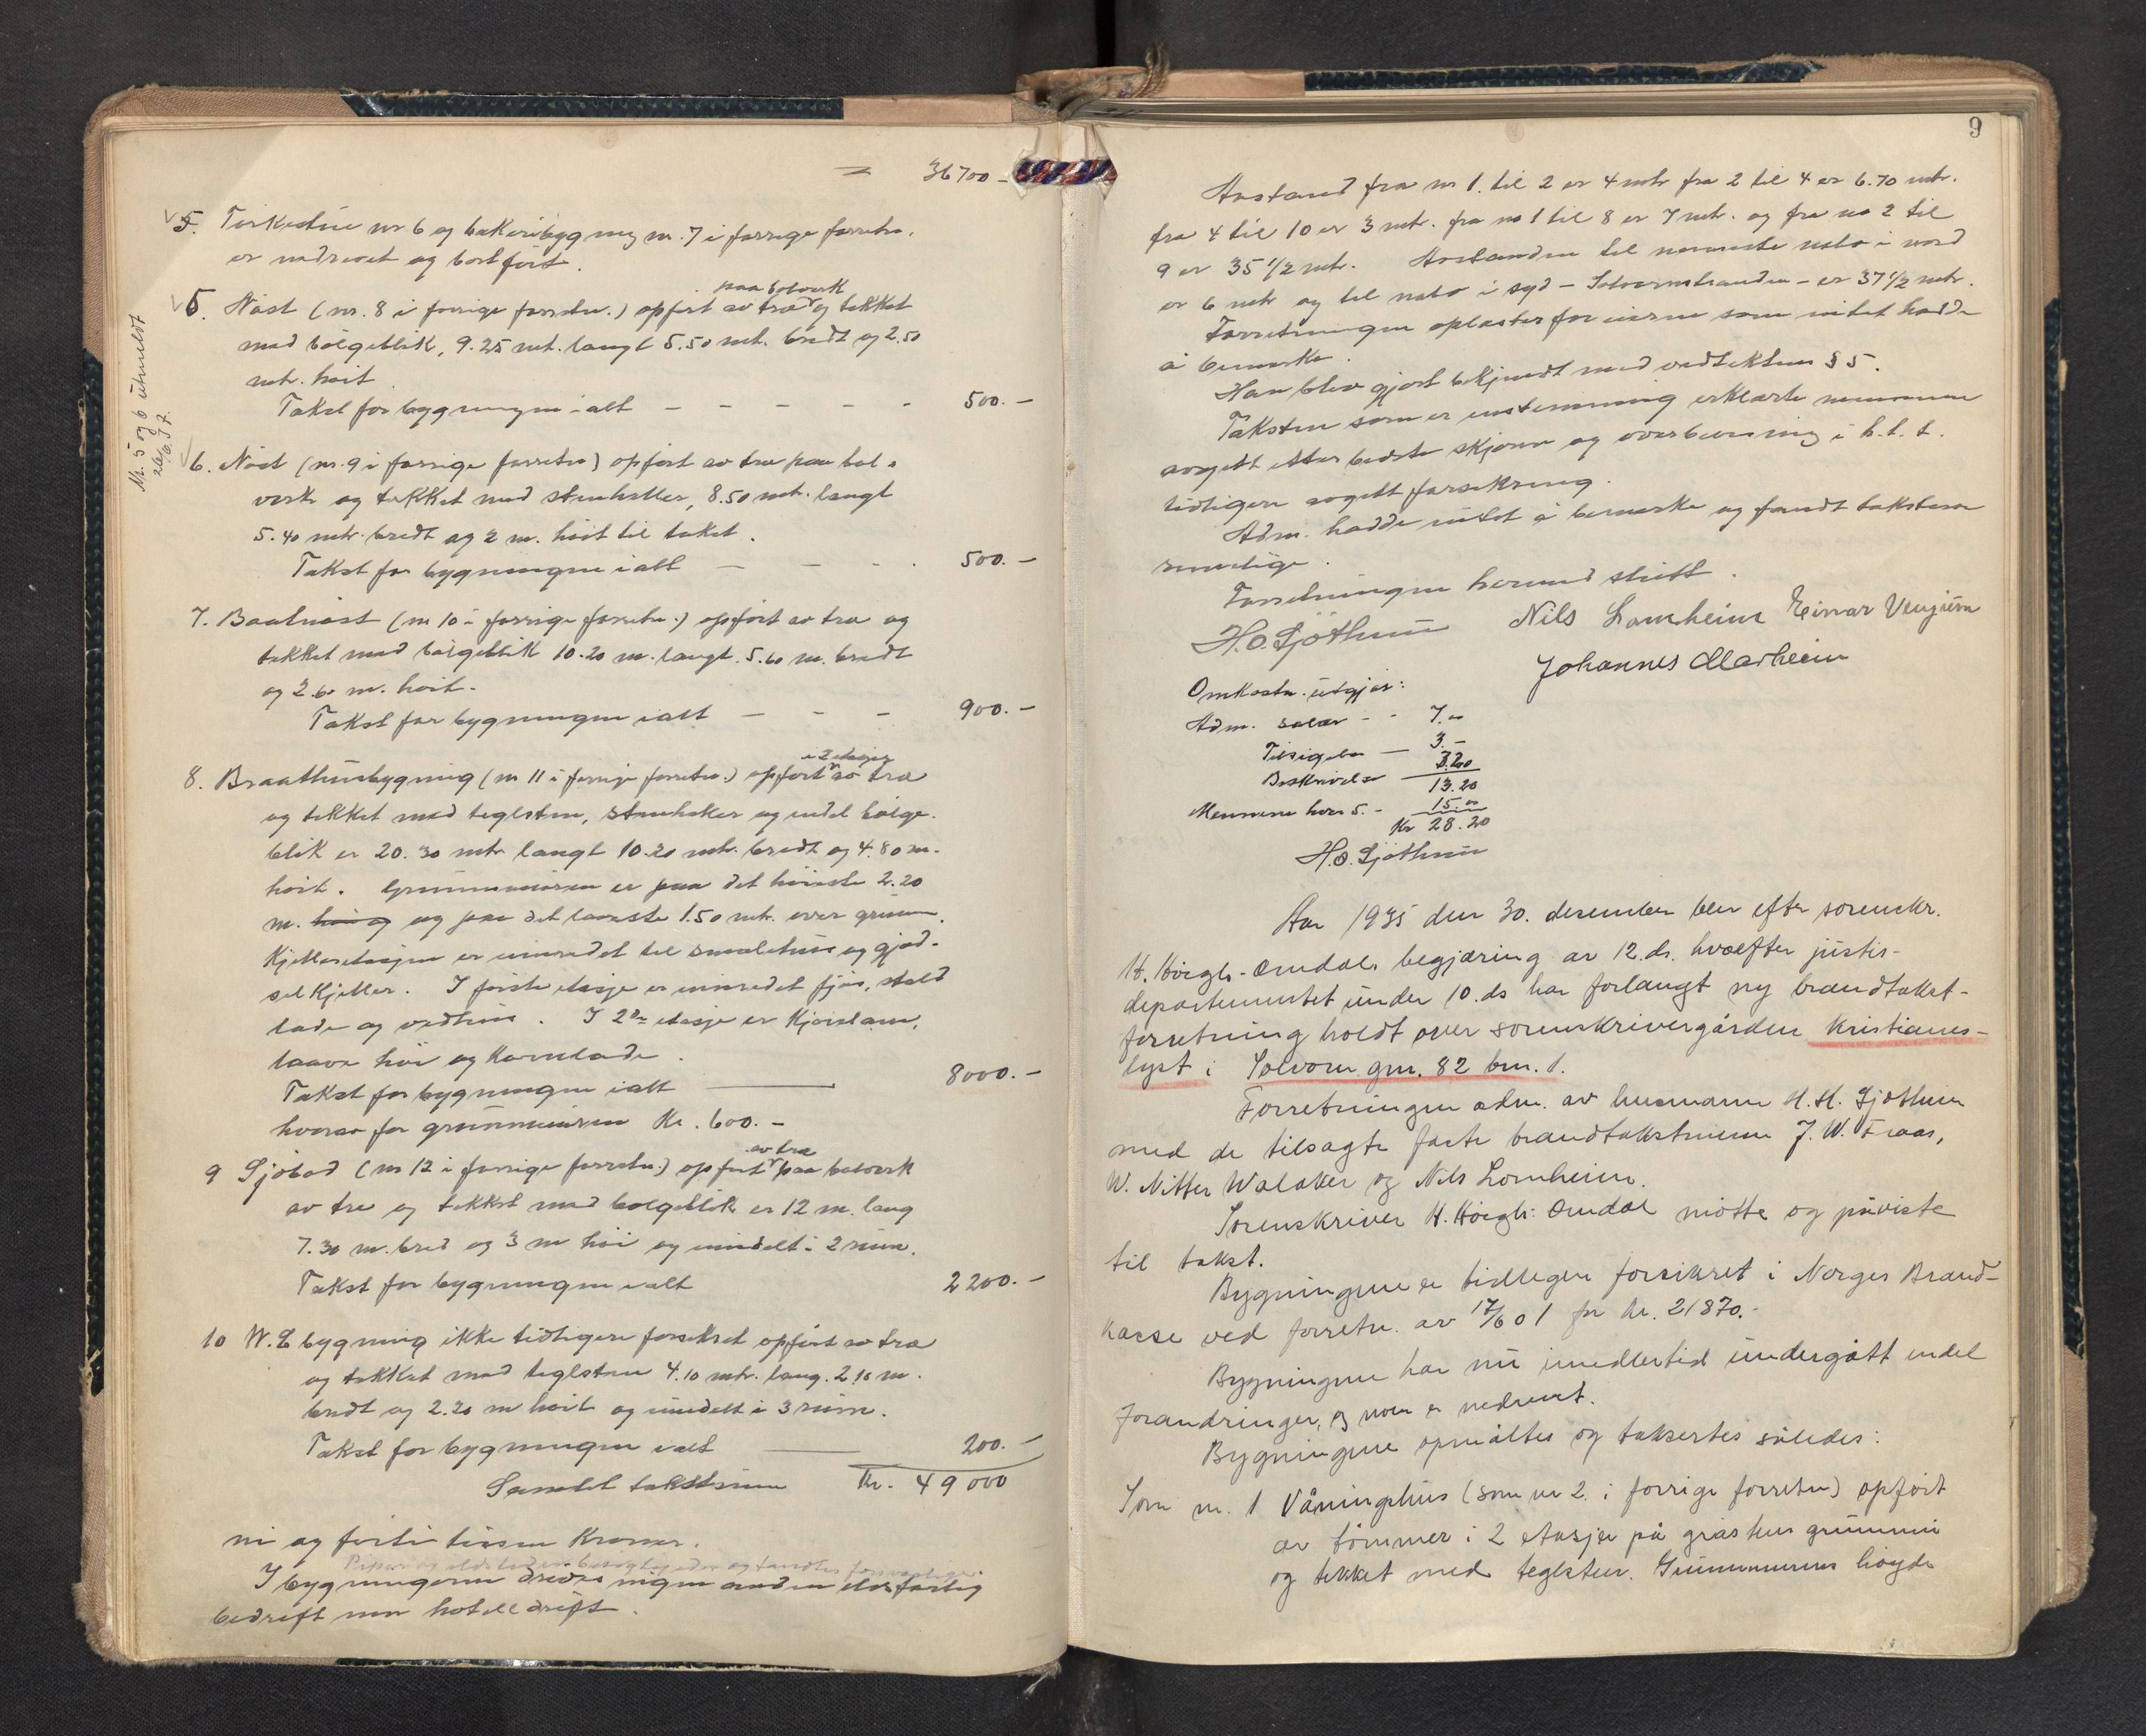 = 36700 –
5. Tørkestue nr 6 og bakeribygning nr. 7 i forrige forretn.
er nedrevet og bortført.
paa bolverk
5. Nøst (nr. 8 i forrige forretn.) opført av træ og tekket
med bølgeblik, 9.25 mtr. langt 5.50 mtr. bredt og 2.50
mtr. høit.
Takst for bygningen ialt – – – – – 500. –
Nr. 5 og 6 utmeldt
6. Nøst (nr. 9 i forrige forretn) opført av træ paa bol-
verk og tekket med stenheller, 8.50 mtr. langt
5.40 mtr. bredt og 2 m. høit til taket.
Takst for bygningen ialt – – – . 500. –
7. Baatnøst (nr 10 i forrige forretn.) opført av træ og
tekket med bølgeblik 10.20 m. langt. 5.60 m. bredt
og 2.60 m. høit.
Takst for bygningen ialt – – – 900. –
i 2 etasjer
8. Braathusbygning (nr 11 i forrige forretn.) opført av træ
og tekket med teglsten, stenheller og endel bølge-
blik er 20.30 mtr. langt 10.20 mtr. bredt og 4.80 m.
høit. Grunnmuren er paa det høieste 2.20
m. høi og og paa det laveste 1.50 mtr. over grunn.
Kjelleretasjen er innredet til smalehus og gjød-
selkjeller. I første etasje er innredet fjøs, stald
lade og vedhus. I 2den etasje er
laave høi og kornlade.
Takst for bygningen ialt — 8000. –
hvorav for grunnmuren Kr. 600. –
av træ
9 Sjøbod (nr 12 i forrige forretn.) opført paa bolverk
av træ og tekket med bølgeblik er 12 m. lang
7.30 m. bred og 3 m høi og inndelt i 2 rum.
Takst for bygningen ialt 2200. –
10 W.C bygning ikke tidligere forsikret opført av træ
og tekket med teglsten 4.10 mtr. lang. 2.10 m.
bredt og 2.20 m høit og inndelt i 3 rum.
Takst for bygningen ialt — 200. –
Samlet takstsum Kr. 49 000
ni og førti tusen Kroner.
Piper og ildsteder besigtigedes og fandtes forsvarlige
I bygningerne drives ingen anden ildsfarlig
bedrift enn hotelldrift.
9
Avstand fra nr 1. til 2 er 4 mtr fra 2 til 4 er 6.70 mtr.
fra 4 til 10 er 3 mtr. fra no 1 til 8 er 7 mtr. og fra no 2 til
9 er 35 1/2 mtr. Avstanden til nærmeste nabo i nord
er 6 mtr og til nabo i syd – Solvornstranden – er 37 1/2 mtr.
Forretningen oplæstes for eieren som intet hadde
å bemerke.
Han blev gjort bekjendt med vedtektene § 5.
Taksten som er enstemmig erklærte mennene
avgitt efter bedste skjønn og overbevisning i h. t. t.
tidligere avgitt forsikring.
Adm. hadde intet å bemerke og fandt taksten
rimelige.
Forretningen hermed slutt.
H. O. Sjøthun Nils Lomheim Einar Venjum
Johannes Marheim
Omkostn. utgjør:
Adm. salær – – 7.00
Tilsigelse — 3. –
Beskrivelse 3.20
13.20
Mennene hver 5. – 15.00
Kr 28.20
H. O. Sjøthun
Aar 1935 den 30. desember blev efter sorenskr.
H. Høegh-Omdals begjæring av 12. ds. hvorefter justis-
departementet under 10. ds har forlangt ny brandtakst-
forretning holdt over sorenskrivergården Kristianes-
lyst i Solvorn gnr. 82 bnr. 1.
Forretningen adm. av lensmann H. H. Sjøthun
med de tilsagte faste brandtakstmenn J. W. Fraas,
W. Nitter Walaker og Nils Lomheim.
Sorenskriver H. Høegh-Omdal møtte og påviste
til takst.
Bygningene er tidligere forsikret i Norges Brand-
kasse ved forretn. av 17/6 01 for kr. 21870.–
Bygningene har nu imidlertid undergått endel
forandringer, og noen er nedrevet.
Bygningene opmåltes og taksertes således:
Som nr. 1 Våningshus (som nr 2. i forrige forretn) opført
av tømmer i 2 etasjer på gråstens grunnmur
og tekket med teglsten. Grunnmurens høyde